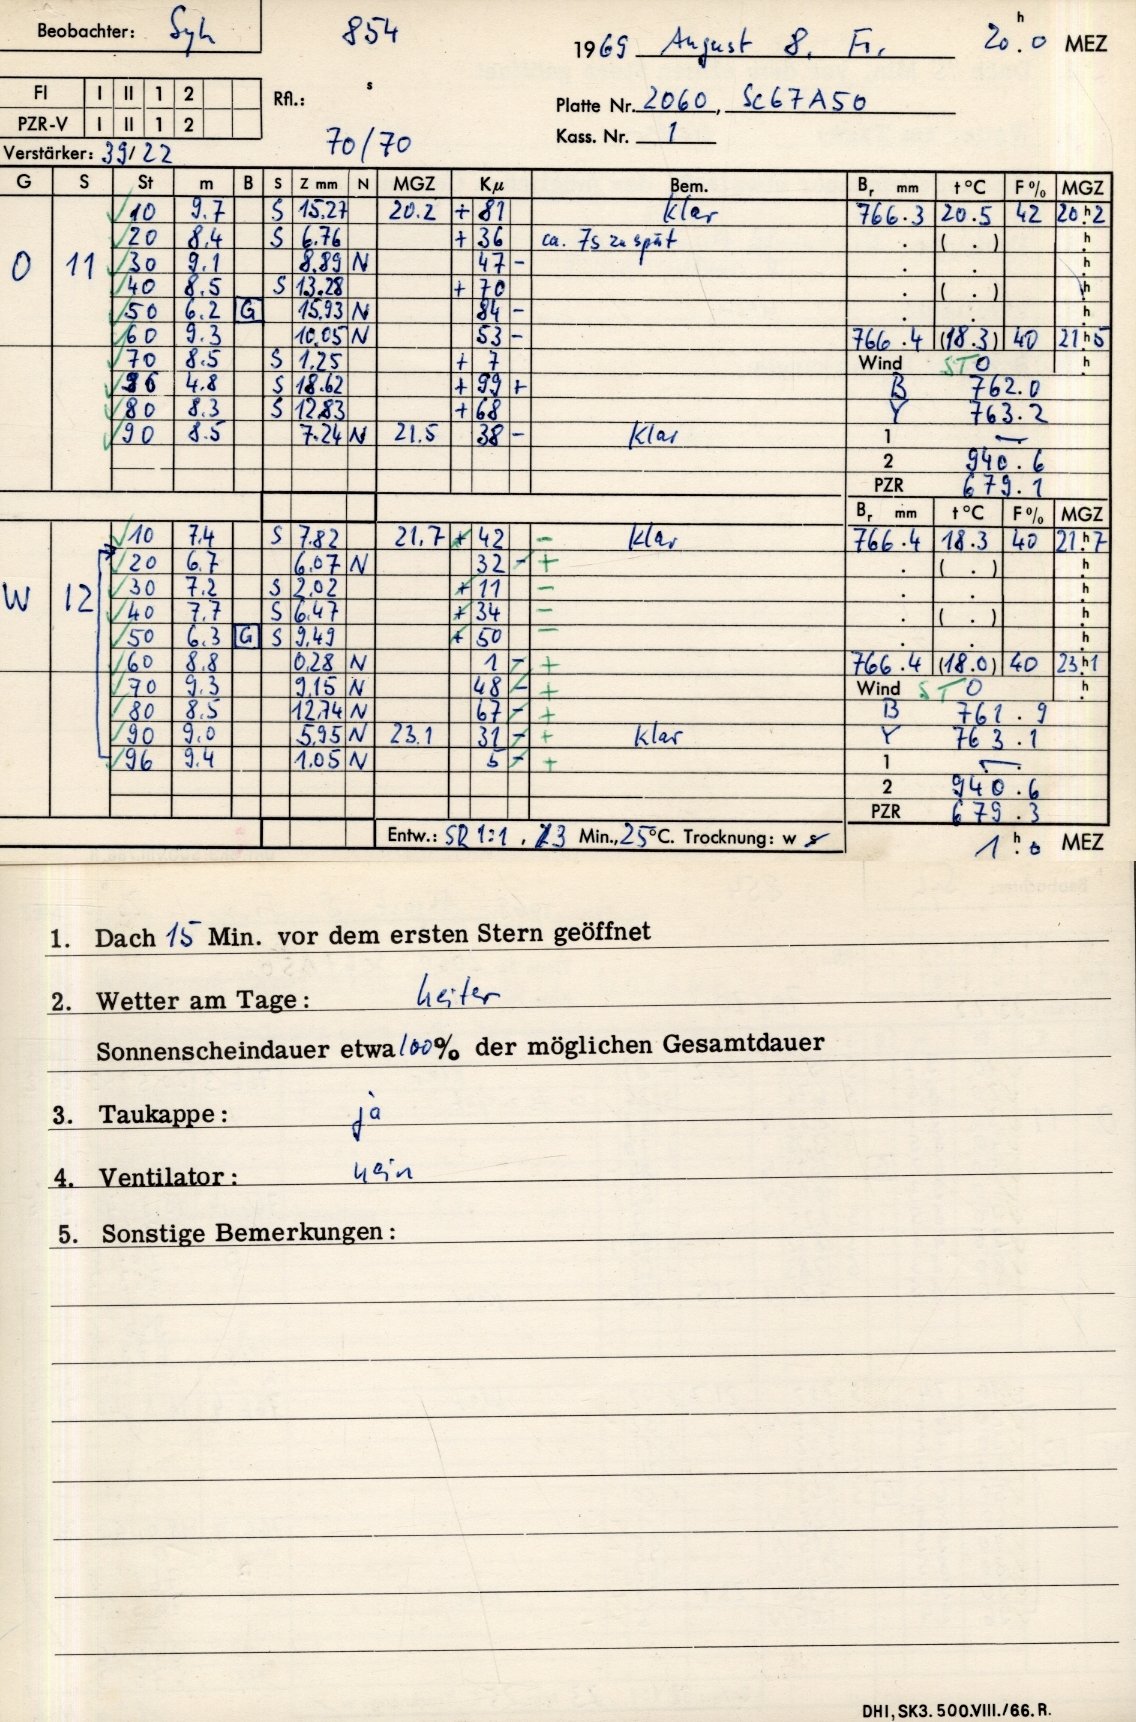 Beobachter: Syh 854 1969 August 8. Fr. 20 h . 0 MEZ
FI I II 1 2 Rfl.: s Platte Nr. 2060, Sc67A50
PZR-V I II 1 2 70/70 Kass. Nr. 1
Verstärker: 39/22
G S St m B S Z mm N MGZ Kμ Bem. Br mm t °C F % MGZ
10 9.7 S 15.27 20.2 + 81 klar 766.3 20.5 42 20 h 2
20 8.4 S 6.76 + 36 ca. 7s zu spät . ( . ) h
O 11 30 9.1 8.89 N 47 - . . h
40 8.5 S 13.28 + 70 . ( . ) h
50 6.2 G 15.93 N 84 - . . h
60 9.3 10.05 N 53 - 766.4 (18.3) 40 21 h 5
70 8.5 S 1.25 + 7 Wind STO h
86 4.8 S 18.62 + 99 + B 762.0
80 8.3 S 12.83 + 68 Y 763.2
90 8.5 7.24 N 21.5 38 - klar 1 —
2 940.6
PZR 679.1
Br mm t °C F % MGZ
10 7.4 S 7.82 21.7 + 42 - klar 766.4 18.3 40 21 h 7
20 6.7 6.07 N 32 - + . ( . ) h
W 12 30 7.2 S 2.02 + 11 - . . h
40 7.7 S 6.47 + 34 - . ( . ) h
50 6.3 G S 9.49 + 50 - . . h
60 8.8 0.28 N 1 - + 766.4 (18.0) 40 23 h 1
70 9.3 9.15 N 48 - + Wind STO h
80 8.5 12.74 N 67 - + B 761.9
90 9.0 5.95 N 23.1 31 - + klar Y 763.1
96 9.4 1.05 N 5 - + 1 —
2 940.6
PZR 679.3
Entw.: SR 1:1, 3 Min., 25°C. Trocknung: w s 1 h . 0 MEZ
1. Dach 15 Min. vor dem ersten Stern geöffnet
2. Wetter am Tage: heiter
Sonnenscheindauer etwa 100% der möglichen Gesamtdauer
3. Taukappe: ja
4. Ventilator: nein
5. Sonstige Bemerkungen:
DHI, SK3. 500.VIII./66. R.